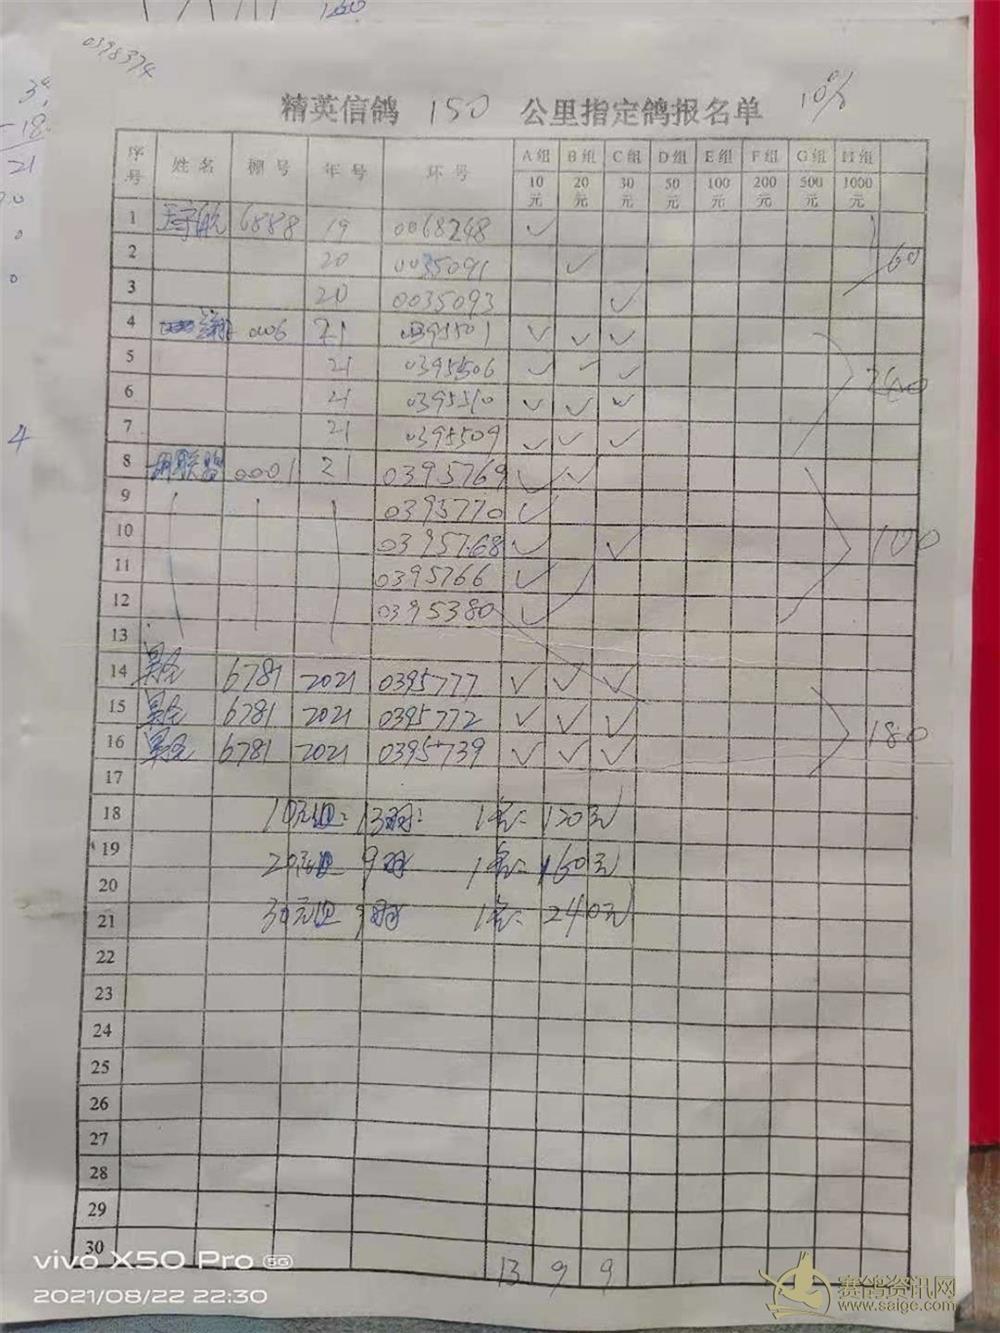 1260
0398374
3,
-18
21
0
0
4
精英信鸽 150 公里指定鸽报名单 10%
序号 姓名 棚号 年号 环号 A组 B组 C组 D组 E组 F组 G组 H组
10元 20元 30元 50元 100元 200元 500元 1000元
1 6888 19 0068248 ✓
2 20 0035091 ✓ 60
3 20 0035093 ✓
4 0006 21 0395501 ✓ ✓ ✓
5 21 0395506 ✓ ✓ ✓ 240
6 21 0395510 ✓ ✓ ✓
7 21 0395509 ✓ ✓ ✓
8 胡联盟 0001 21 0395769 ✓ ✓
9 0395770 ✓
10 0395768 ✓ ✓ 100
11 0395766 ✓
12 0395380 ✓
13
14 6781 2021 0395777 ✓ ✓ ✓
15 6781 2021 0395772 ✓ ✓ ✓
16 6781 2021 0395739 ✓ ✓ ✓ 180
17
18 10元组: 13羽: 1名: 120元
19 20元组 9羽 1名: 160元
20
21 30元组 9羽 1名: 240元
22
23
24
25
26
27
28
29
30 13 9 9
vivo X50 Pro 5G
2021/08/22 22:30
赛鸽资讯网
www.saige.com